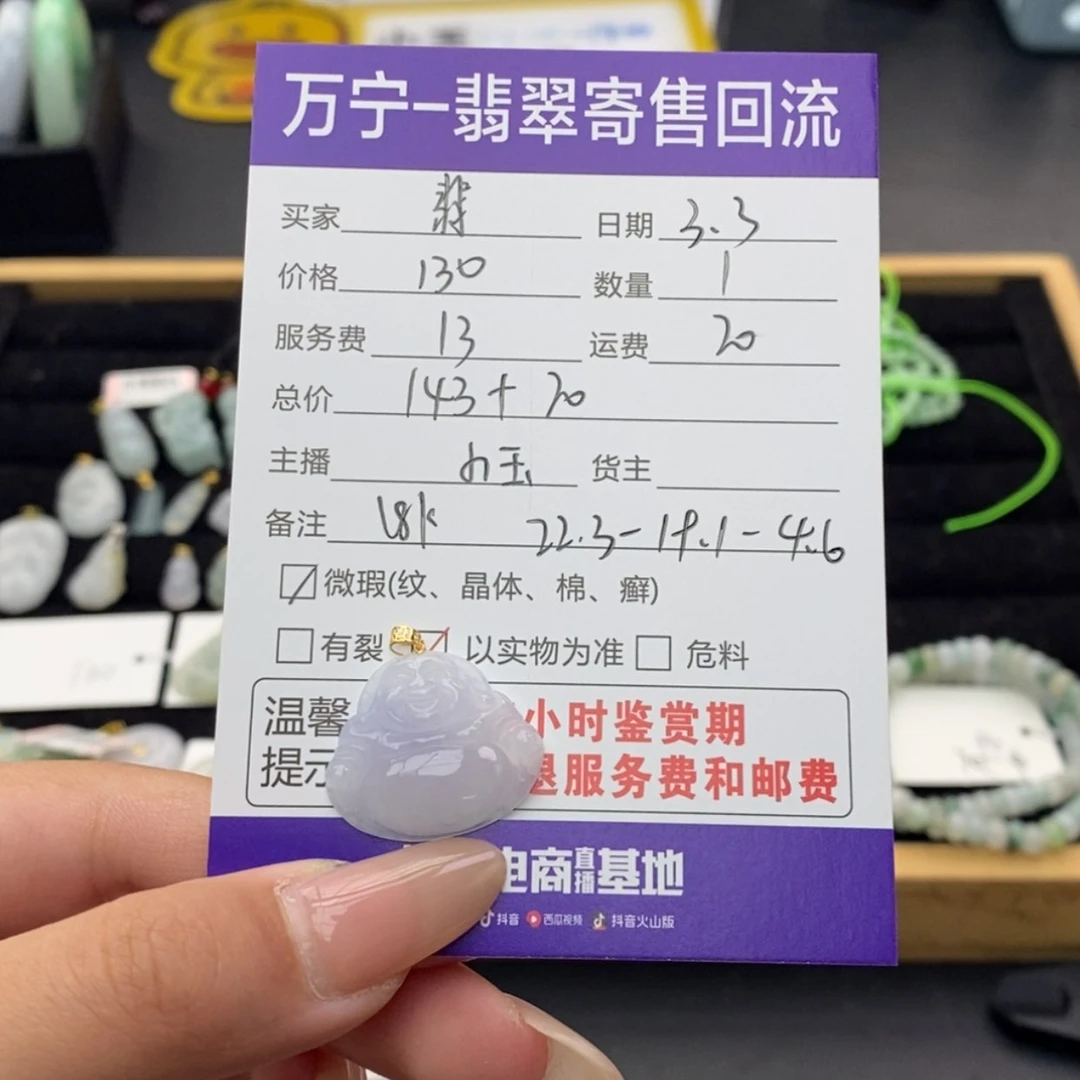 万宁-翡翠寄售回流
买家 翡 日期 3.3
价格 130 数量 1
服务费 13 运费 20
总价 143+20
主播 小玉 货主
备注 18k 22.3-19.1-4.6
微瑕(纹、晶体、棉、癣)
有裂 以实物为准 危料
温馨 小时鉴赏期
提示 退服务费和邮费
电商直播基地
抖音 西瓜视频 抖音火山版